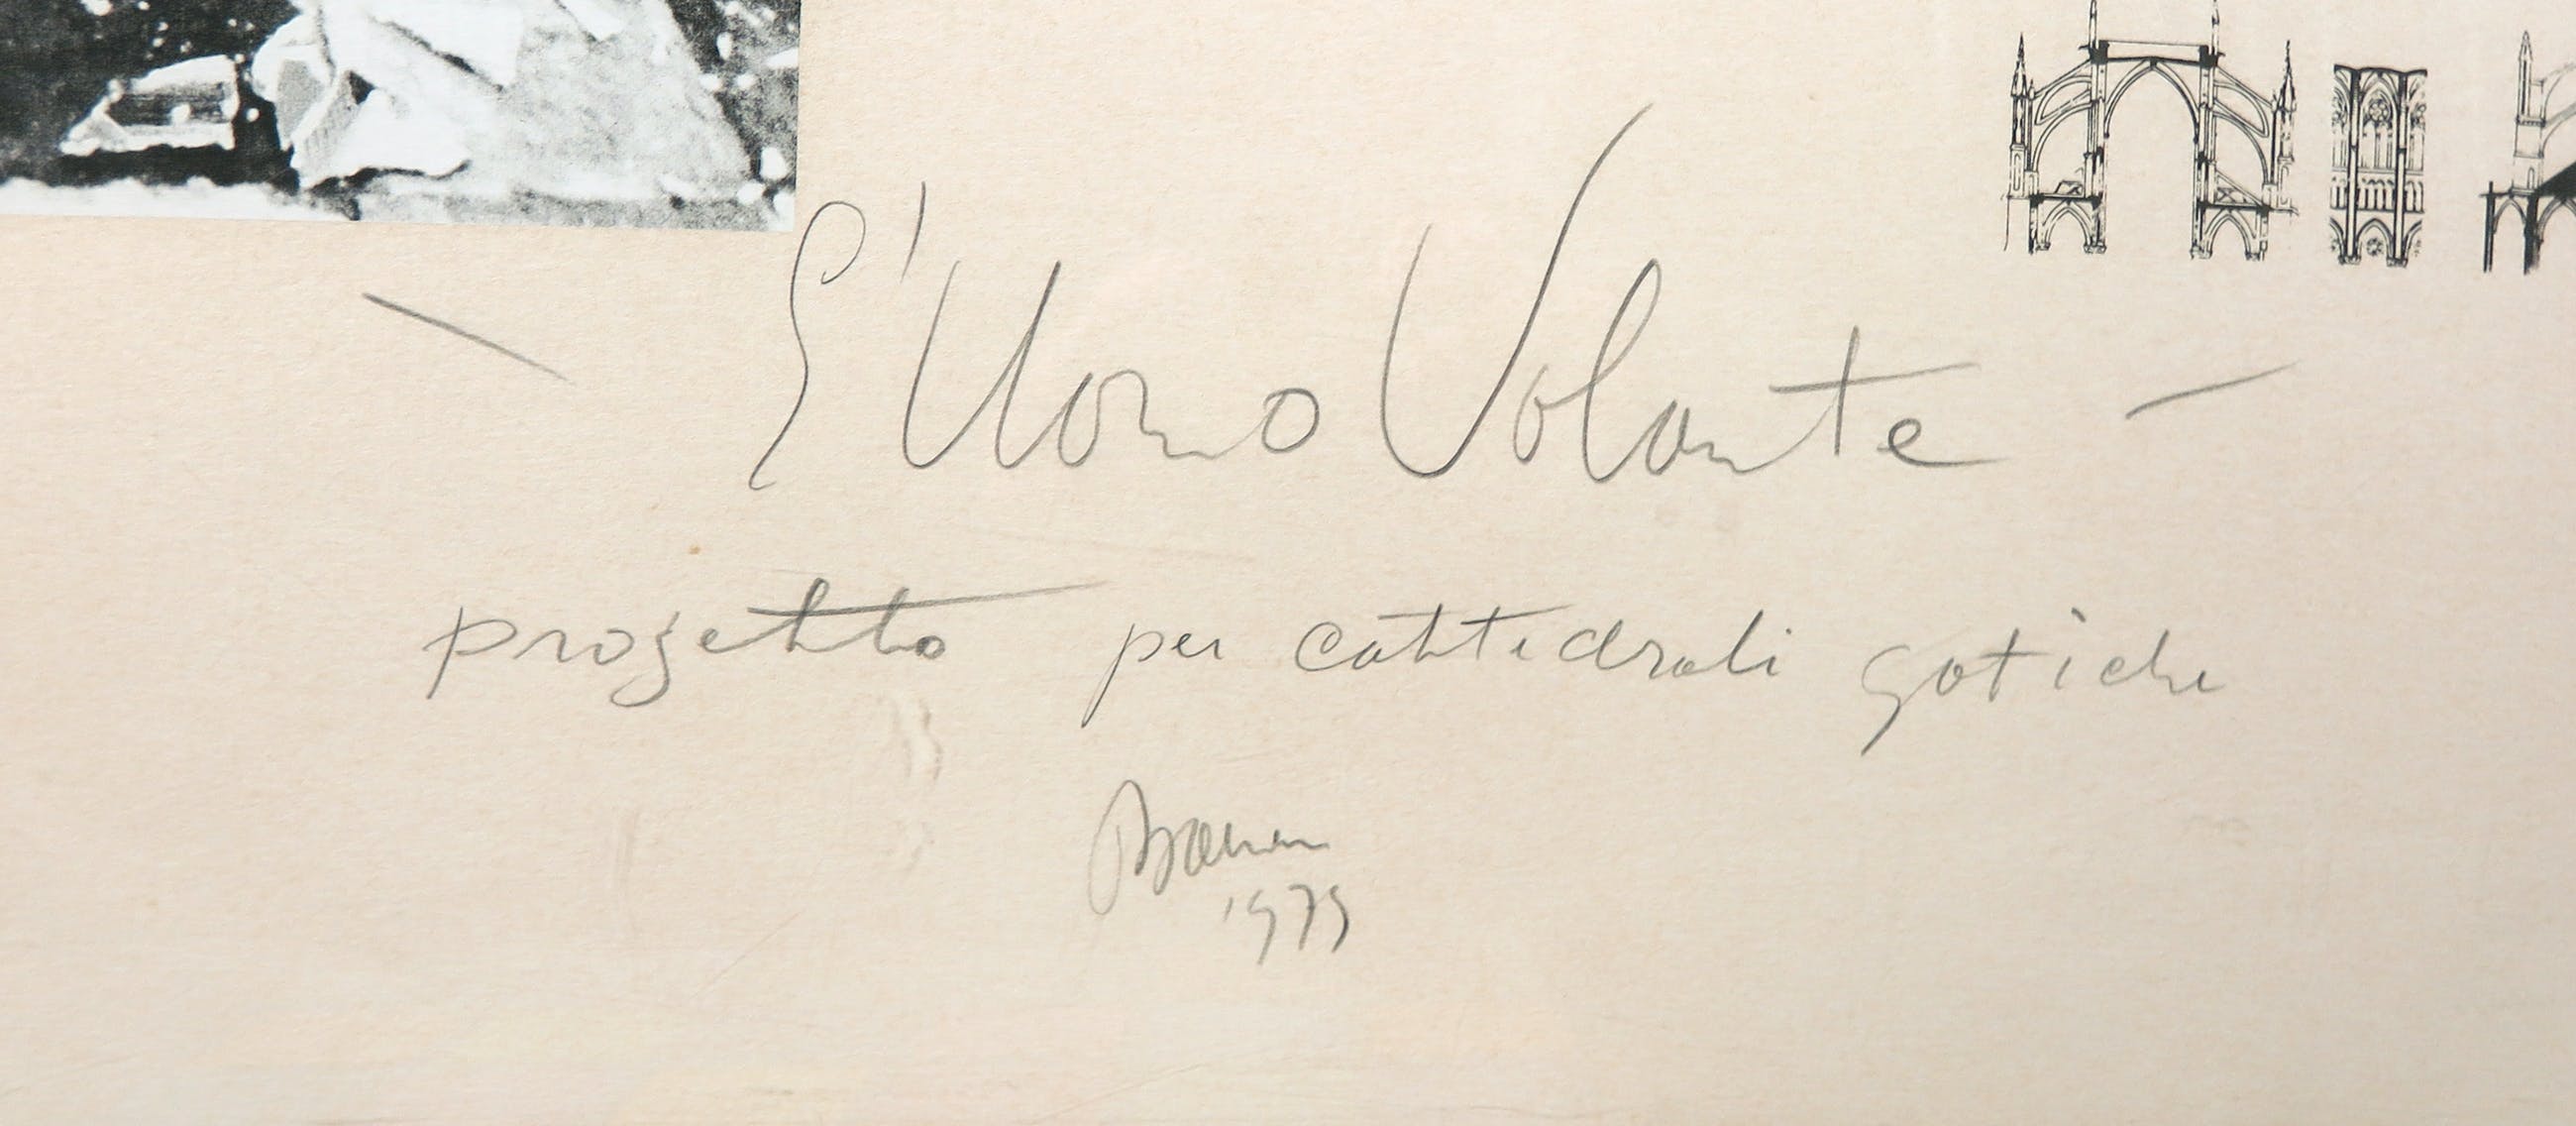 — L'Uomo Volante —
progetto per cattedrali gotiche
1979